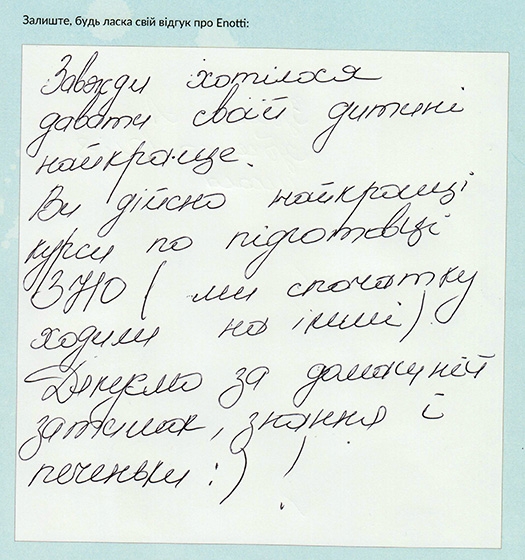 Залиште, будь ласка свій відгук про Enotti:
Завжди хотілося
давати своїй дитині
найкраще.
Ви дійсно найкращі
курси по підготовці
ЗНО (ми спочатку
ходили на інші)
Дякуємо за домашній
затишок, знання і
печеньки :)